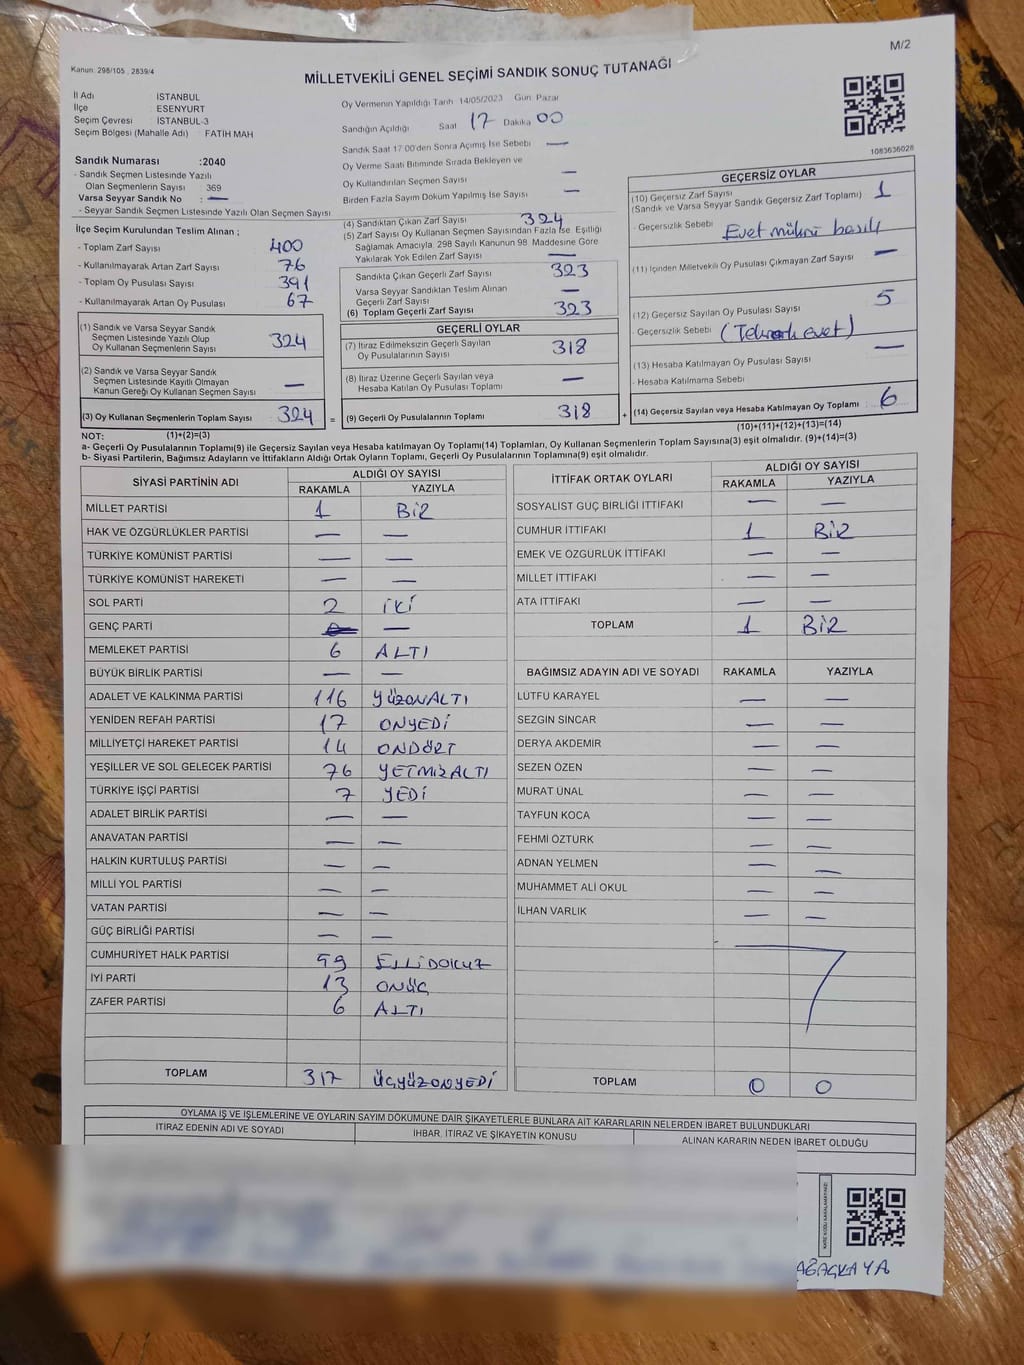 M/2
Kanun: 298/105 , 2839/4
MİLLETVEKİLİ GENEL SEÇİMİ SANDIK SONUÇ TUTANAĞI
İl Adı : İSTANBUL
İlçe : ESENYURT
Seçim Çevresi : İSTANBUL-3
Seçim Bölgesi (Mahalle Adı) : FATİH MAH
Sandık Numarası :2040
- Sandık Seçmen Listesinde Yazılı
Olan Seçmenlerin Sayısı : 369
Varsa Seyyar Sandık No : —
- Seyyar Sandık Seçmen Listesinde Yazılı Olan Seçmen Sayısı
Oy Vermenin Yapıldığı Tarih 14/05/2023 Gün: Pazar
Sandığın Açıldığı Saat 17 Dakika 00
Sandık Saat 17:00'den Sonra Açılmış İse Sebebi —
Oy Verme Saati Bitiminde Sırada Bekleyen ve
Oy Kullandırılan Seçmen Sayısı —
Birden Fazla Sayım Döküm Yapılmış İse Sayısı —
1083636028
İlçe Seçim Kurulundan Teslim Alınan ;
- Toplam Zarf Sayısı 400
- Kullanılmayarak Artan Zarf Sayısı 76
- Toplam Oy Pusulası 391
- Kullanılmayarak Artan Oy Pusulası 67
(1) Sandık ve Varsa Seyyar Sandık
Seçmen Listesinde Yazılı Olup
Oy Kullanan Seçmenlerin Sayısı 324
(2) Sandık ve Varsa Seyyar Sandık
Seçmen Listesinde Kayıtlı Olmayan
Kanun Gereği Oy Kullanan Seçmen Sayısı —
(3) Oy Kullanan Seçmenlerin Toplam Sayısı 324 =
(4) Sandıktan Çıkan Zarf Sayısı 324
(5) Zarf Sayısı Oy Kullanan Seçmen Sayısından Fazla İse, Eşitliği
Sağlamak Amacıyla, 298 Sayılı Kanunun 98. Maddesine Göre
Yakılarak Yok Edilen Zarf Sayısı —
Sandıkta Çıkan Geçerli Zarf Sayısı 323
Varsa Seyyar Sandıktan Teslim Alınan
Geçerli Zarf Sayısı —
(6) Toplam Geçerli Zarf Sayısı 323
GEÇERLİ OYLAR
(7) İtiraz Edilmeksizin Geçerli Sayılan
Oy Pusulalarının Sayısı 318
(8) İtiraz Üzerine Geçerli Sayılan veya
Hesaba Katılan Oy Pusulası Toplamı —
(9) Geçerli Oy Pusulalarının Toplamı 318 +
GEÇERSİZ OYLAR
(10) Geçersiz Zarf Sayısı 1
(Sandık ve Varsa Seyyar Sandık Geçersiz Zarf Toplamı)
- Geçersizlik Sebebi Evet mührü basılı
(11) İçinden Milletvekili Oy Pusulası Çıkmayan Zarf Sayısı —
(12) Geçersiz Sayılan Oy Pusulası Sayısı 5
- Geçersizlik Sebebi
(13) Hesaba Katılmayan Oy Pusulası Sayısı —
- Hesaba Katılmama Sebebi
(14) Geçersiz Sayılan veya Hesaba Katılmayan Oy Toplamı 6
(10)+(11)+(12)+(13)=(14)
NOT: (1)+(2)=(3)
a- Geçerli Oy Pusulalarının Toplamı(9) ile Geçersiz Sayılan veya Hesaba katılmayan Oy Toplamı(14) Toplamları, Oy Kullanan Seçmenlerin Toplam Sayısına(3) eşit olmalıdır. (9)+(14)=(3)
b- Siyasi Partilerin, Bağımsız Adayların ve İttifakların Aldığı Ortak Oyların Toplamı, Geçerli Oy Pusulalarının Toplamına(9) eşit olmalıdır.
SİYASİ PARTİNİN ADI ALDIĞI OY SAYISI
RAKAMLA YAZIYLA
MİLLET PARTİSİ 1 BİR
HAK VE ÖZGÜRLÜKLER PARTİSİ — —
TÜRKİYE KOMÜNİST PARTİSİ — —
TÜRKİYE KOMÜNİST HAREKETİ — —
SOL PARTİ 2 İKİ
GENÇ PARTİ —
MEMLEKET PARTİSİ 6 ALTI
BÜYÜK BİRLİK PARTİSİ — —
ADALET VE KALKINMA PARTİSİ 116 YÜZONALTI
YENİDEN REFAH PARTİSİ 17 ONYEDİ
MİLLİYETÇİ HAREKET PARTİSİ 14 ONDÖRT
YEŞİLLER VE SOL GELECEK PARTİSİ 76 YETMİŞALTI
TÜRKİYE İŞÇİ PARTİSİ 7 YEDİ
ADALET BİRLİK PARTİSİ — —
ANAVATAN PARTİSİ — —
HALKIN KURTULUŞ PARTİSİ — —
MİLLİ YOL PARTİSİ — —
VATAN PARTİSİ — —
GÜÇ BİRLİĞİ PARTİSİ — —
CUMHURİYET HALK PARTİSİ 59 ELLİDOKUZ
İYİ PARTİ 13 ONÜÇ
ZAFER PARTİSİ 6 ALTI
TOPLAM 317 ÜÇYÜZONYEDİ
İTTİFAK ORTAK OYLARI ALDIĞI OY SAYISI
RAKAMLA YAZIYLA
SOSYALİST GÜÇ BİRLİĞİ İTTİFAKI — —
CUMHUR İTTİFAKI 1 BİR
EMEK VE ÖZGÜRLÜK İTTİFAKI — —
MİLLET İTTİFAKI — —
ATA İTTİFAKI — —
TOPLAM 1 BİR
BAĞIMSIZ ADAYIN ADI VE SOYADI RAKAMLA YAZIYLA
LÜTFÜ KARAYEL — —
SEZGİN SİNCAR — —
DERYA AKDEMİR — —
SEZEN ÖZEN — —
MURAT ÜNAL — —
TAYFUN KOCA — —
FEHMİ ÖZTÜRK — —
ADNAN YELMEN — —
MUHAMMET ALİ OKUL — —
İLHAN VARLIK — —
TOPLAM 0 0
OYLAMA İŞ VE İŞLEMLERİNE VE OYLARIN SAYIM DÖKÜMÜNE DAİR ŞİKAYETLERLE BUNLARA AİT KARARLARIN NELERDEN İBARET BULUNDUKLARI
İTİRAZ EDENİN ADI VE SOYADI İHBAR, İTİRAZ VE ŞİKAYETİN KONUSU ALINAN KARARIN NEDEN İBARET OLDUĞU
AĞAÇKAYA